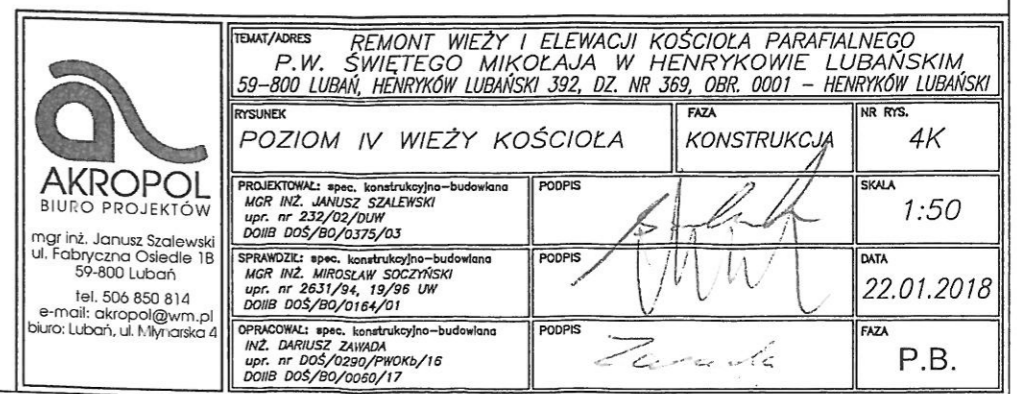 AKROPOL
BIURO PROJEKTÓW
mgr inż. Janusz Szalewski
ul. Fabryczna Osiedle 1B
59-800 Lubań
tel. 506 850 814
e-mail: akropol@wm.pl
biuro: Lubań, ul. Młynarska 4
TEMAT/ADRES REMONT WIEŻY I ELEWACJI KOŚCIOŁA PARAFIALNEGO
P.W. ŚWIĘTEGO MIKOŁAJA W HENRYKOWIE LUBAŃSKIM
59-800 LUBAŃ, HENRYKÓW LUBAŃSKI 392, DZ. NR 369, OBR. 0001 – HENRYKÓW LUBAŃSKI
RYSUNEK
POZIOM IV WIEŻY KOŚCIOŁA
FAZA
KONSTRUKCJA
NR RYS.
4K
PROJEKTOWAŁ: spec. konstrukcyjno-budowlana
MGR INŻ. JANUSZ SZALEWSKI
upr. nr 232/02/DUW
DOIIB DOŚ/BO/0375/03
PODPIS
SKALA
1:50
SPRAWDZIŁ: spec. konstrukcyjno-budowlana
MGR INŻ. MIROSŁAW SOCZYŃSKI
upr. nr 2631/94, 19/96 UW
DOIIB DOŚ/BO/0164/01
PODPIS
DATA
22.01.2018
OPRACOWAŁ: spec. konstrukcyjno-budowlana
INŻ. DARIUSZ ZAWADA
upr. nr DOŚ/0290/PWOKb/16
DOIIB DOŚ/BO/0060/17
PODPIS
Zawada
FAZA
P.B.